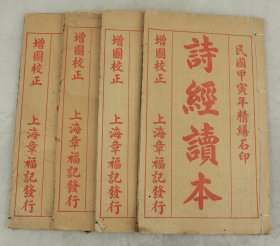 民國甲寅年精繕石印
詩經讀本
增圖校正
上海章福記發行
增圖校正
上海章福記發行
增圖校正
上海章福記發行
增圖校正
上海章福記發行